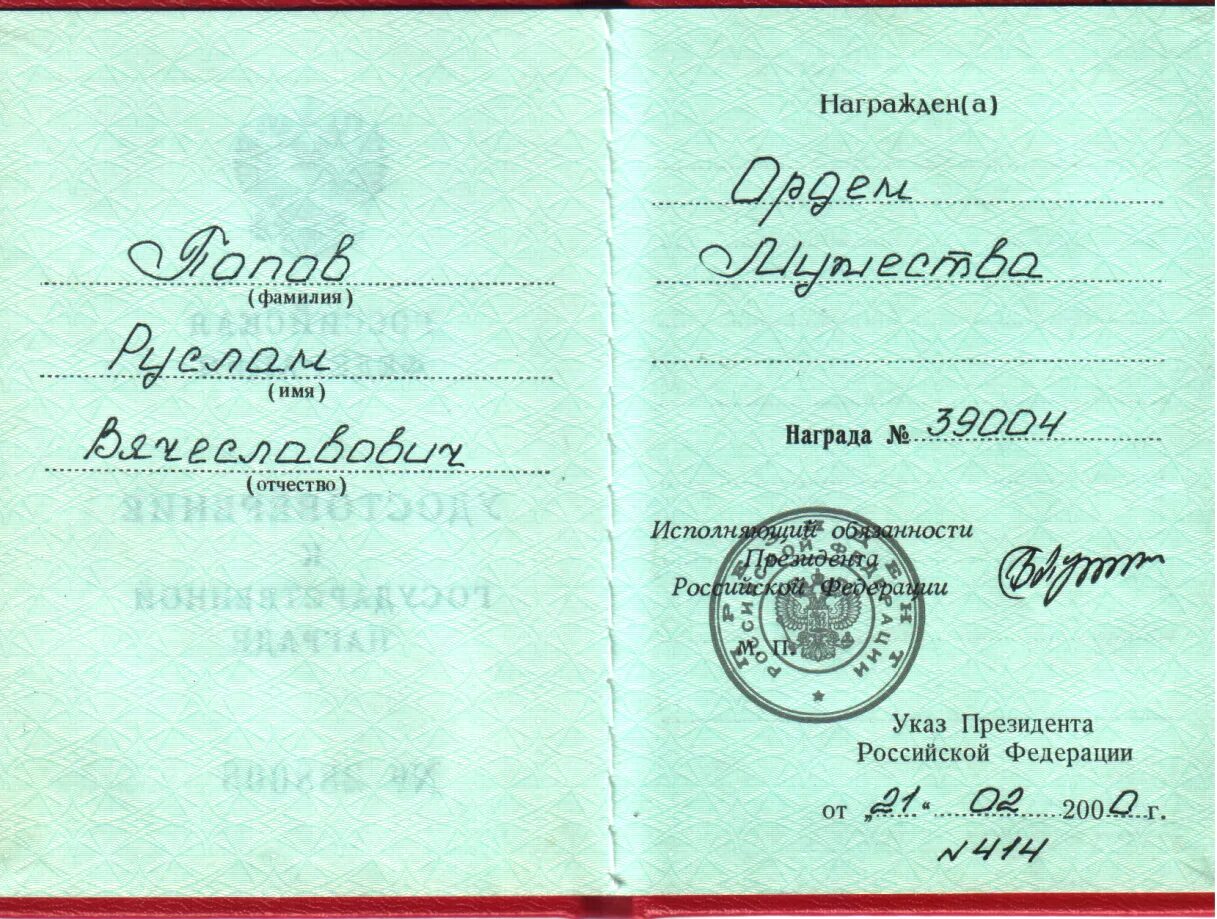 Попов
(фамилия)
Руслан
(имя)
Вячеславович
(отчество)
Награжден(а)
Орден
Мужества
Награда № 39004
Исполняющий обязанности
Президента
Российской Федерации
ПРЕЗИДЕНТ
РОССИЙСКОЙ ФЕДЕРАЦИИ
М. П.
Указ Президента
Российской Федерации
от „21“ 02 2000 г.
N414